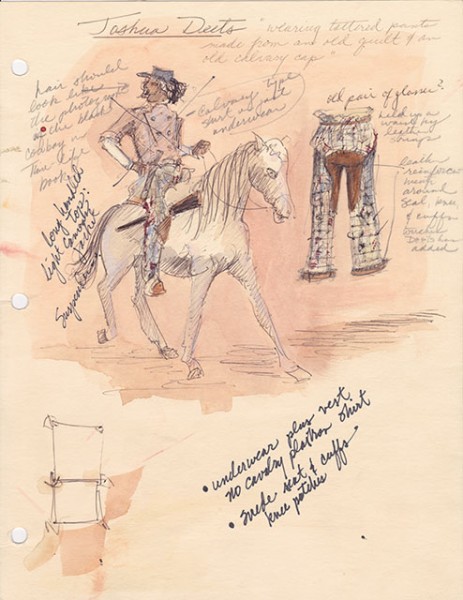 Joshua Deets "wearing tattered pants
made from an old quilt & an
old calvary cap"
hair should
look like
the photograph
of the black
cowboy in
Time-Life
book
Calvary type
shirt or just
underwear
old pair of gloves?
held up w
leather
leather
reinforcement
around
seat, knee
& cuffs
Deets has
added
long handle
top:
light
Suspenders
• underwear plus vest
no cavalry plastron shirt
• suede seat & cuffs
knee patches